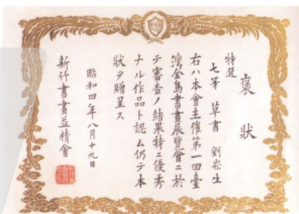 褒狀
特選
七等 草書 劉崧生
右ハ本會主催第一回臺
灣全島書畫展覽會ニ於
テ審查ノ結果特ニ優秀
ナル作品ト認ム仍テ本
狀ヲ贈呈ス
昭和四年八月十九日
新竹書畫益精會